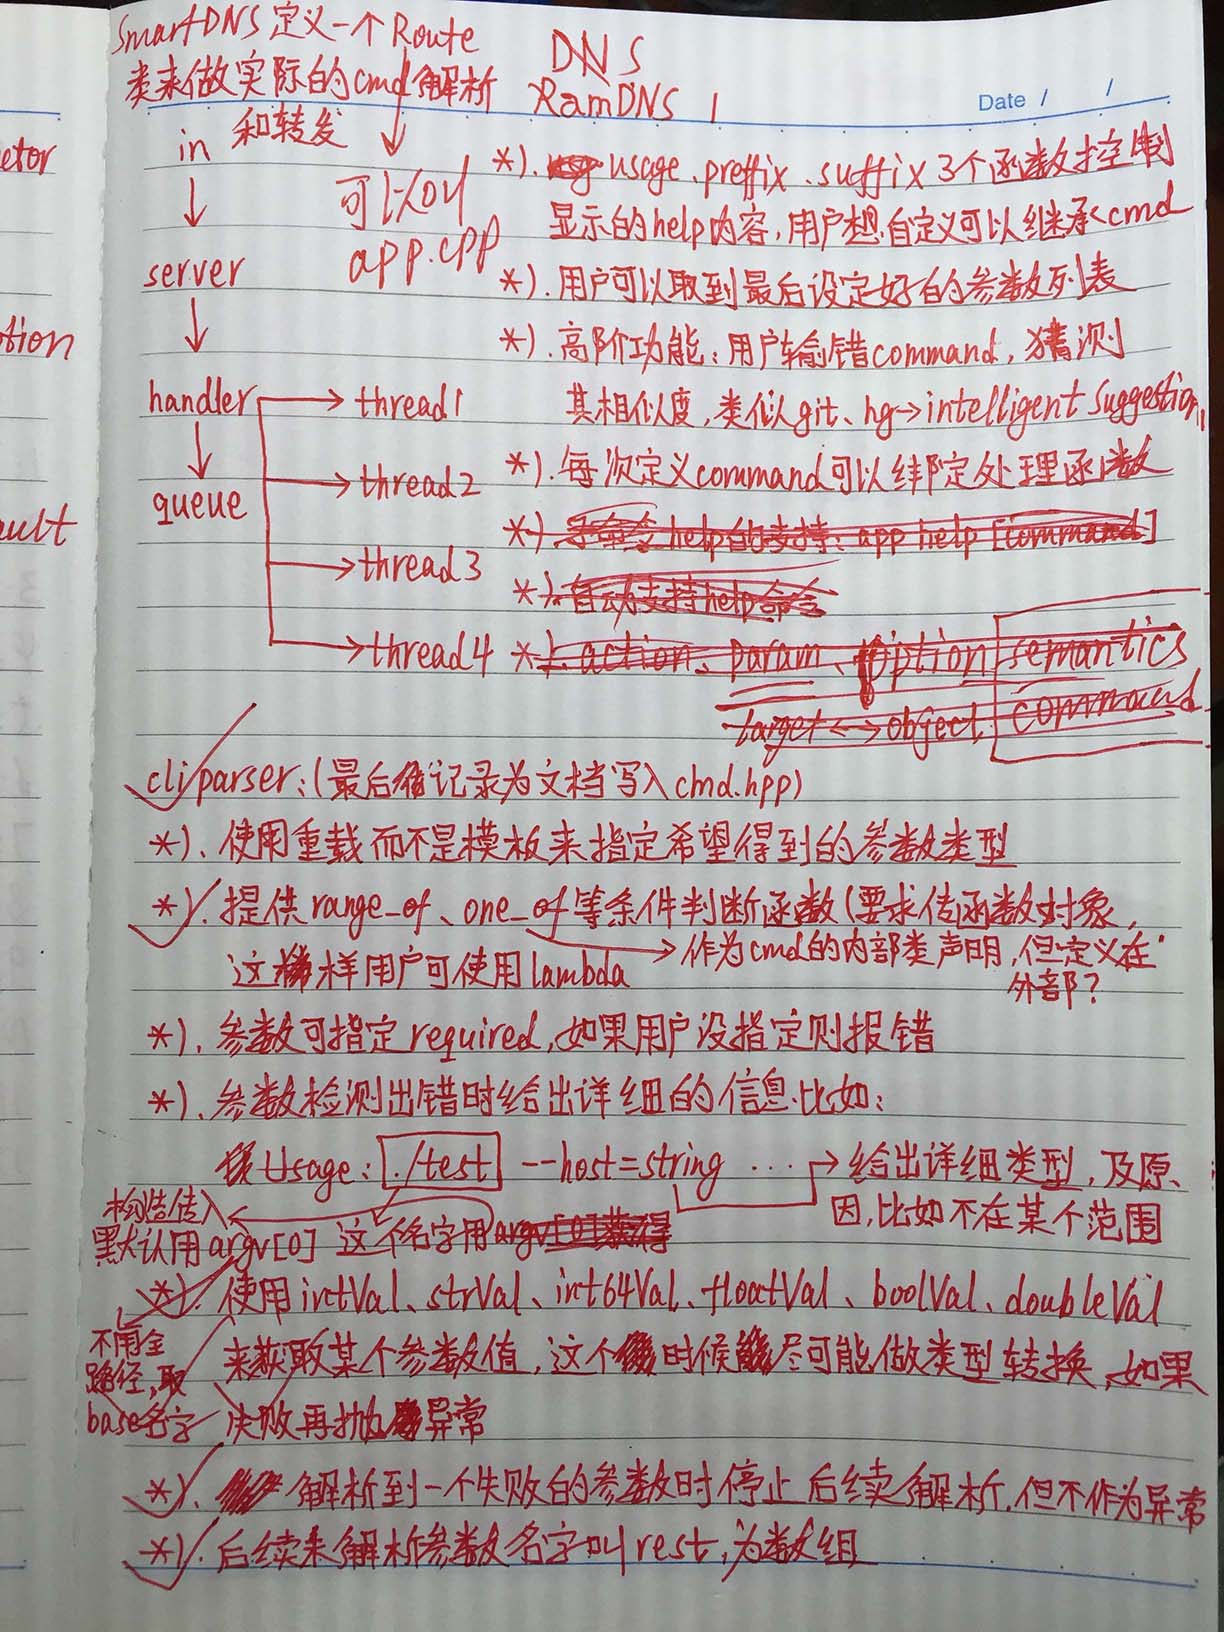 SmartDNS 定义一个Route
类来做实际的cmd解析
和转发
可以叫
app.cpp
DNS
RamDNS
Date / /
in
server
handler
queue
thread1
thread2
thread3
thread4
*). usage、preffix、suffix 3个函数控制
显示的help内容,用户想自定义可以继承cmd
*). 用户可以取到最后设定好的参数列表
*). 高阶功能:用户输错command,猜测
其相似度,类似git、hg→intelligent suggestion
*). 每次定义command可以绑定处理函数
*). 子命令help的支持:app help [command]
*). 自动支持help命令
*). action、param、option semantics
target ↔ object command
cli parser:(最后记录为文档写入cmd.hpp)
*). 使用重载而不是模板来指定希望得到的参数类型
*). 提供range_of、one_of等条件判断函数(要求传函数对象,
这样用户可使用lambda
→作为cmd的内部类声明,但定义在
外部?
*). 参数可指定required,如果用户没指定则报错
*). 参数检测出错时给出详细的信息.比如:
Usage: ./test --host=string ... → 给出详细类型,及原
因,比如不在某个范围
构造传入
默认用argv[0] 这个名字用argv[0]获得
*). 使用intVal、strVal、int64Val、floatVal、boolVal、doubleVal
来获取某个参数值,这个时候尽可能做类型转换,如果
失败再抛异常
不用全
路径,取
base名字
*). 解析到一个失败的参数时停止后续解析,但不作为异常
*). 后续未解析参数名字叫rest,为数组
etor
otion
ault